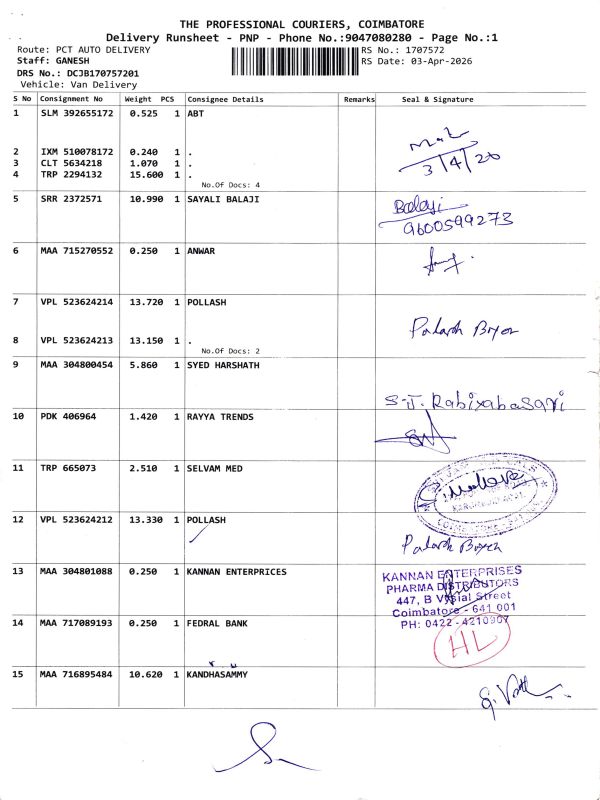 THE PROFESSIONAL COURIERS, COIMBATORE
Delivery Runsheet - PNP - Phone No.:9047080280 - Page No.:1
Route: PCT AUTO DELIVERY RS No.: 1707572
Staff: GANESH RS Date: 03-Apr-2026
DRS No.: DCJB170757201
Vehicle: Van Delivery
S No Consignment No Weight PCS Consignee Details Remarks Seal & Signature
1 SLM 392655172 0.525 1 ABT
2 IXM 510078172 0.240 1 .
3 CLT 5634218 1.070 1 .
3/4/26
4 TRP 2294132 15.600 1 .
No.Of Docs: 4
5 SRR 2372571 10.990 1 SAYALI BALAJI
Balaji
9600599273
6 MAA 715270552 0.250 1 ANWAR
7 VPL 523624214 13.720 1 POLLASH
Palash
8 VPL 523624213 13.150 1 .
No.Of Docs: 2
9 MAA 304800454 5.860 1 SYED HARSHATH
S.J. Rabiyabasari
10 PDK 406964 1.420 1 RAYYA TRENDS
11 TRP 665073 2.510 1 SELVAM MED
12 VPL 523624212 13.330 1 POLLASH
Palash
13 MAA 304801088 0.250 1 KANNAN ENTERPRICES
KANNAN ENTERPRISES
PHARMA DISTRIBUTORS
447, B Vysial Street
Coimbatore - 641 001
PH: 0422 - 4210907
14 MAA 717089193 0.250 1 FEDRAL BANK
HL
15 MAA 716895484 10.620 1 KANDHASAMMY